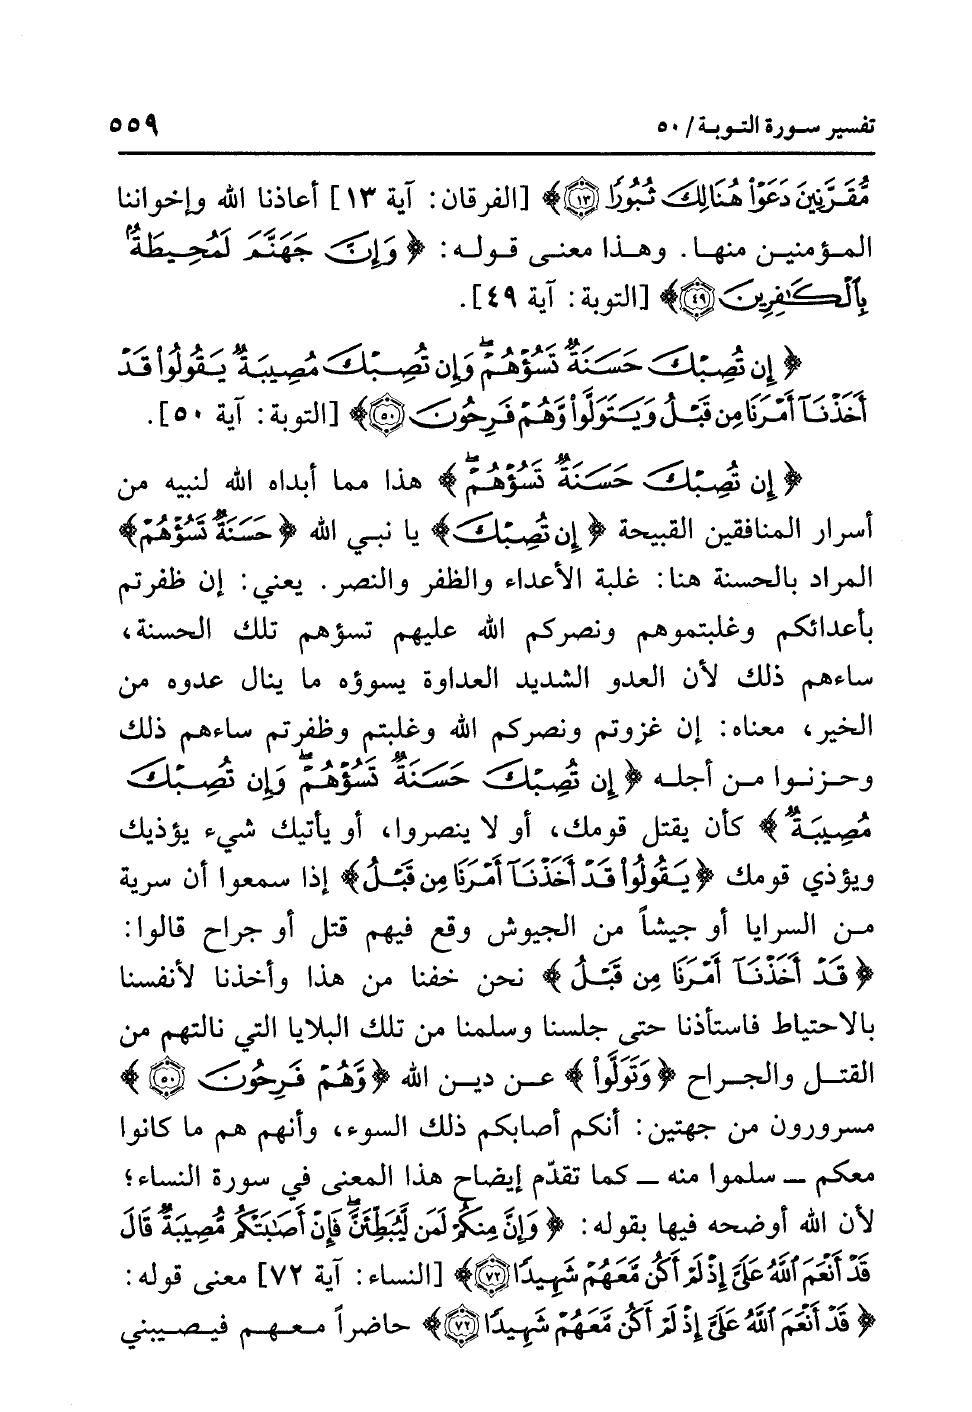 تفسير سورة التوبة/ ٥٠ ٥٥٩
مُّقَرَّنِينَ دَعَوْاْ هُنَالِكَ ثُبُورًا ١٣﴾ [الفرقان: آية ١٣] أعاذنا الله وإخواننا
المؤمنين منها. وهذا معنى قوله: ﴿وَإِنَّ جَهَنَّمَ لَمُحِيطَةٌۢ
بِٱلْكَٰفِرِينَ ٤٩﴾ [التوبة: آية ٤٩].
﴿إِن تُصِبْكَ حَسَنَةٌ تَسُؤْهُمْۖ وَإِن تُصِبْكَ مُصِيبَةٌ يَقُولُواْ قَدْ
أَخَذْنَآ أَمْرَنَا مِن قَبْلُ وَيَتَوَلَّواْ وَّهُمْ فَرِحُونَ ٥٠﴾ [التوبة: آية ٥٠].
﴿إِن تُصِبْكَ حَسَنَةٌ تَسُؤْهُمْۖ﴾ هذا مما أبداه الله لنبيه من
أسرار المنافقين القبيحة ﴿إِن تُصِبْكَ﴾ يا نبي الله ﴿حَسَنَةٌ تَسُؤْهُمْ﴾
المراد بالحسنة هنا: غلبة الأعداء والظفر والنصر. يعني: إن ظفرتم
بأعدائكم وغلبتموهم ونصركم الله عليهم تسؤهم تلك الحسنة،
ساءهم ذلك لأن العدو الشديد العداوة يسوؤه ما ينال عدوه من
الخير، معناه: إن غزوتم ونصركم الله وغلبتم وظفرتم ساءهم ذلك
وحزنوا من أجله ﴿إِن تُصِبْكَ حَسَنَةٌ تَسُؤْهُمْۖ وَإِن تُصِبْكَ
مُصِيبَةٌ﴾ كأن يقتل قومك، أو لا ينصروا، أو يأتيك شيء يؤذيك
ويؤذي قومك ﴿يَقُولُواْ قَدْ أَخَذْنَآ أَمْرَنَا مِن قَبْلُ﴾ إذا سمعوا أن سرية
من السرايا أو جيشاً من الجيوش وقع فيهم قتل أو جراح قالوا:
﴿قَدْ أَخَذْنَآ أَمْرَنَا مِن قَبْلُ﴾ نحن خفنا من هذا وأخذنا لأنفسنا
بالاحتياط فاستأذنا حتى جلسنا وسلمنا من تلك البلايا التي نالتهم من
القتل والجراح ﴿وَتَوَلَّواْ﴾ عن دين الله ﴿وَّهُمْ فَرِحُونَ ٥٠﴾
مسرورون من جهتين: أنكم أصابكم ذلك السوء، وأنهم هم ما كانوا
معكم ــ سلموا منه ــ كما تقدّم إيضاح هذا المعنى في سورة النساء؛
لأن الله أوضحه فيها بقوله: ﴿وَإِنَّ مِنكُمْ لَمَن لَّيُبَطِّئَنَّۖ فَإِنْ أَصَٰبَتْكُم مُّصِيبَةٌ قَالَ
قَدْ أَنْعَمَ ٱللَّهُ عَلَيَّ إِذْ لَمْ أَكُن مَّعَهُمْ شَهِيدًا ٧٢﴾ [النساء: آية ٧٢] معنى قوله:
﴿قَدْ أَنْعَمَ ٱللَّهُ عَلَيَّ إِذْ لَمْ أَكُن مَّعَهُمْ شَهِيدًا ٧٢﴾ حاضراً معهم فيصيبني